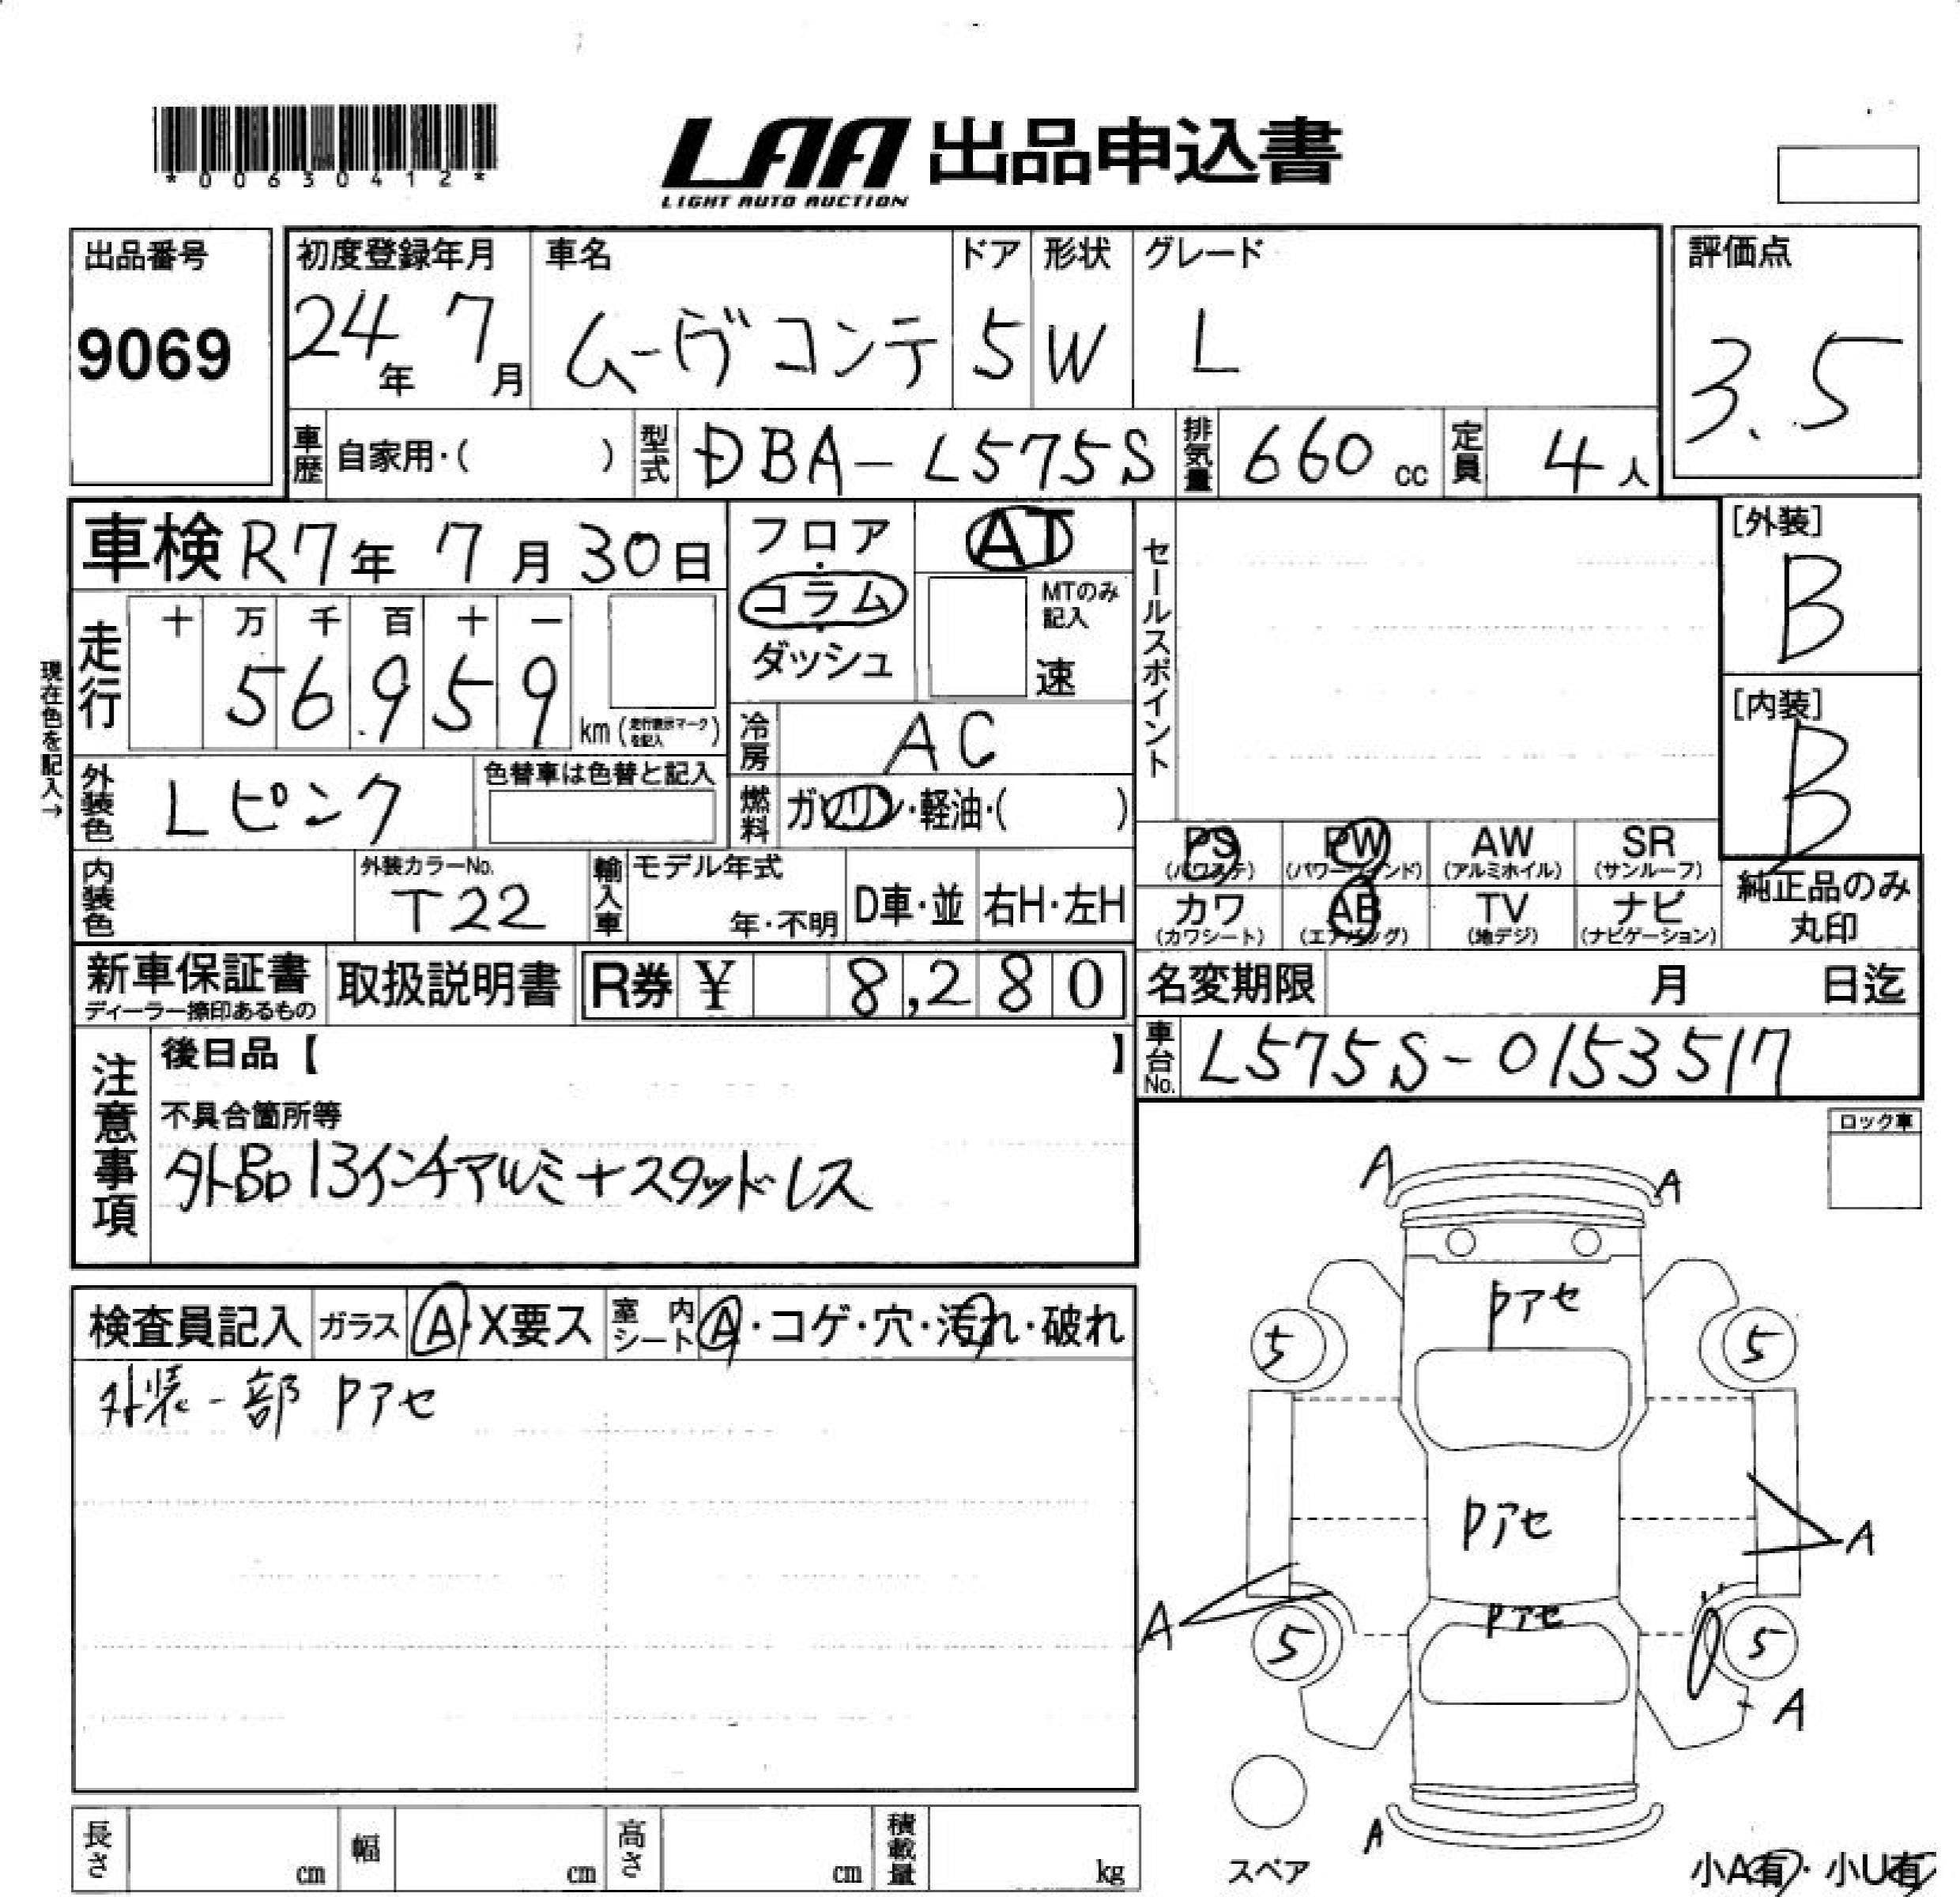 *00630412*
LAA 出品申込書
LIGHT AUTO AUCTION
出品番号 9069
初度登録年月 24年 7月
車名 ムーヴコンテ
ドア 5
形状 W
グレード L
評価点 3.5
車歴 自家用・( )
型式 DBA-L575S
排気量 660 cc
定員 4人
車検 R7年 7月 30日
フロア・コラム・ダッシュ
AT
MTのみ記入
速
セールスポイント
[外装] B
[内装] B
現在色を記入→
走行 十 万 千 百 十 一
56959 km (走行表示マークを記入)
冷房 AC
外装色 Lピンク
色替車は色替と記入
燃料 ガソリン・軽油・( )
PS (パワステ) PW (パワーウインド) AW (アルミホイル) SR (サンルーフ)
カワ (カワシート) AB (エアバッグ) TV (地デジ) ナビ (ナビゲーション)
純正品のみ丸印
内装色
外装カラーNo. T22
輸入車 モデル年式 年・不明 D車・並 右H・左H
新車保証書 ディーラー捺印あるもの
取扱説明書
R券 ¥ 8,280
名変期限 月 日迄
車台No. L575S-0153517
注意事項
後日品【 】
不具合箇所等
外Bp 13インチアルミ+スタッドレス
ロック車
検査員記入 ガラス A・X要ス 室内シート A・コゲ・穴・汚れ・破れ
外装一部 Pアセ
A A
Pアセ
5 5
Pアセ
A
A
Pアセ
5 5
A
A
スペア
小A有・小U有
長さ cm 幅 cm 高さ cm 積載量 kg